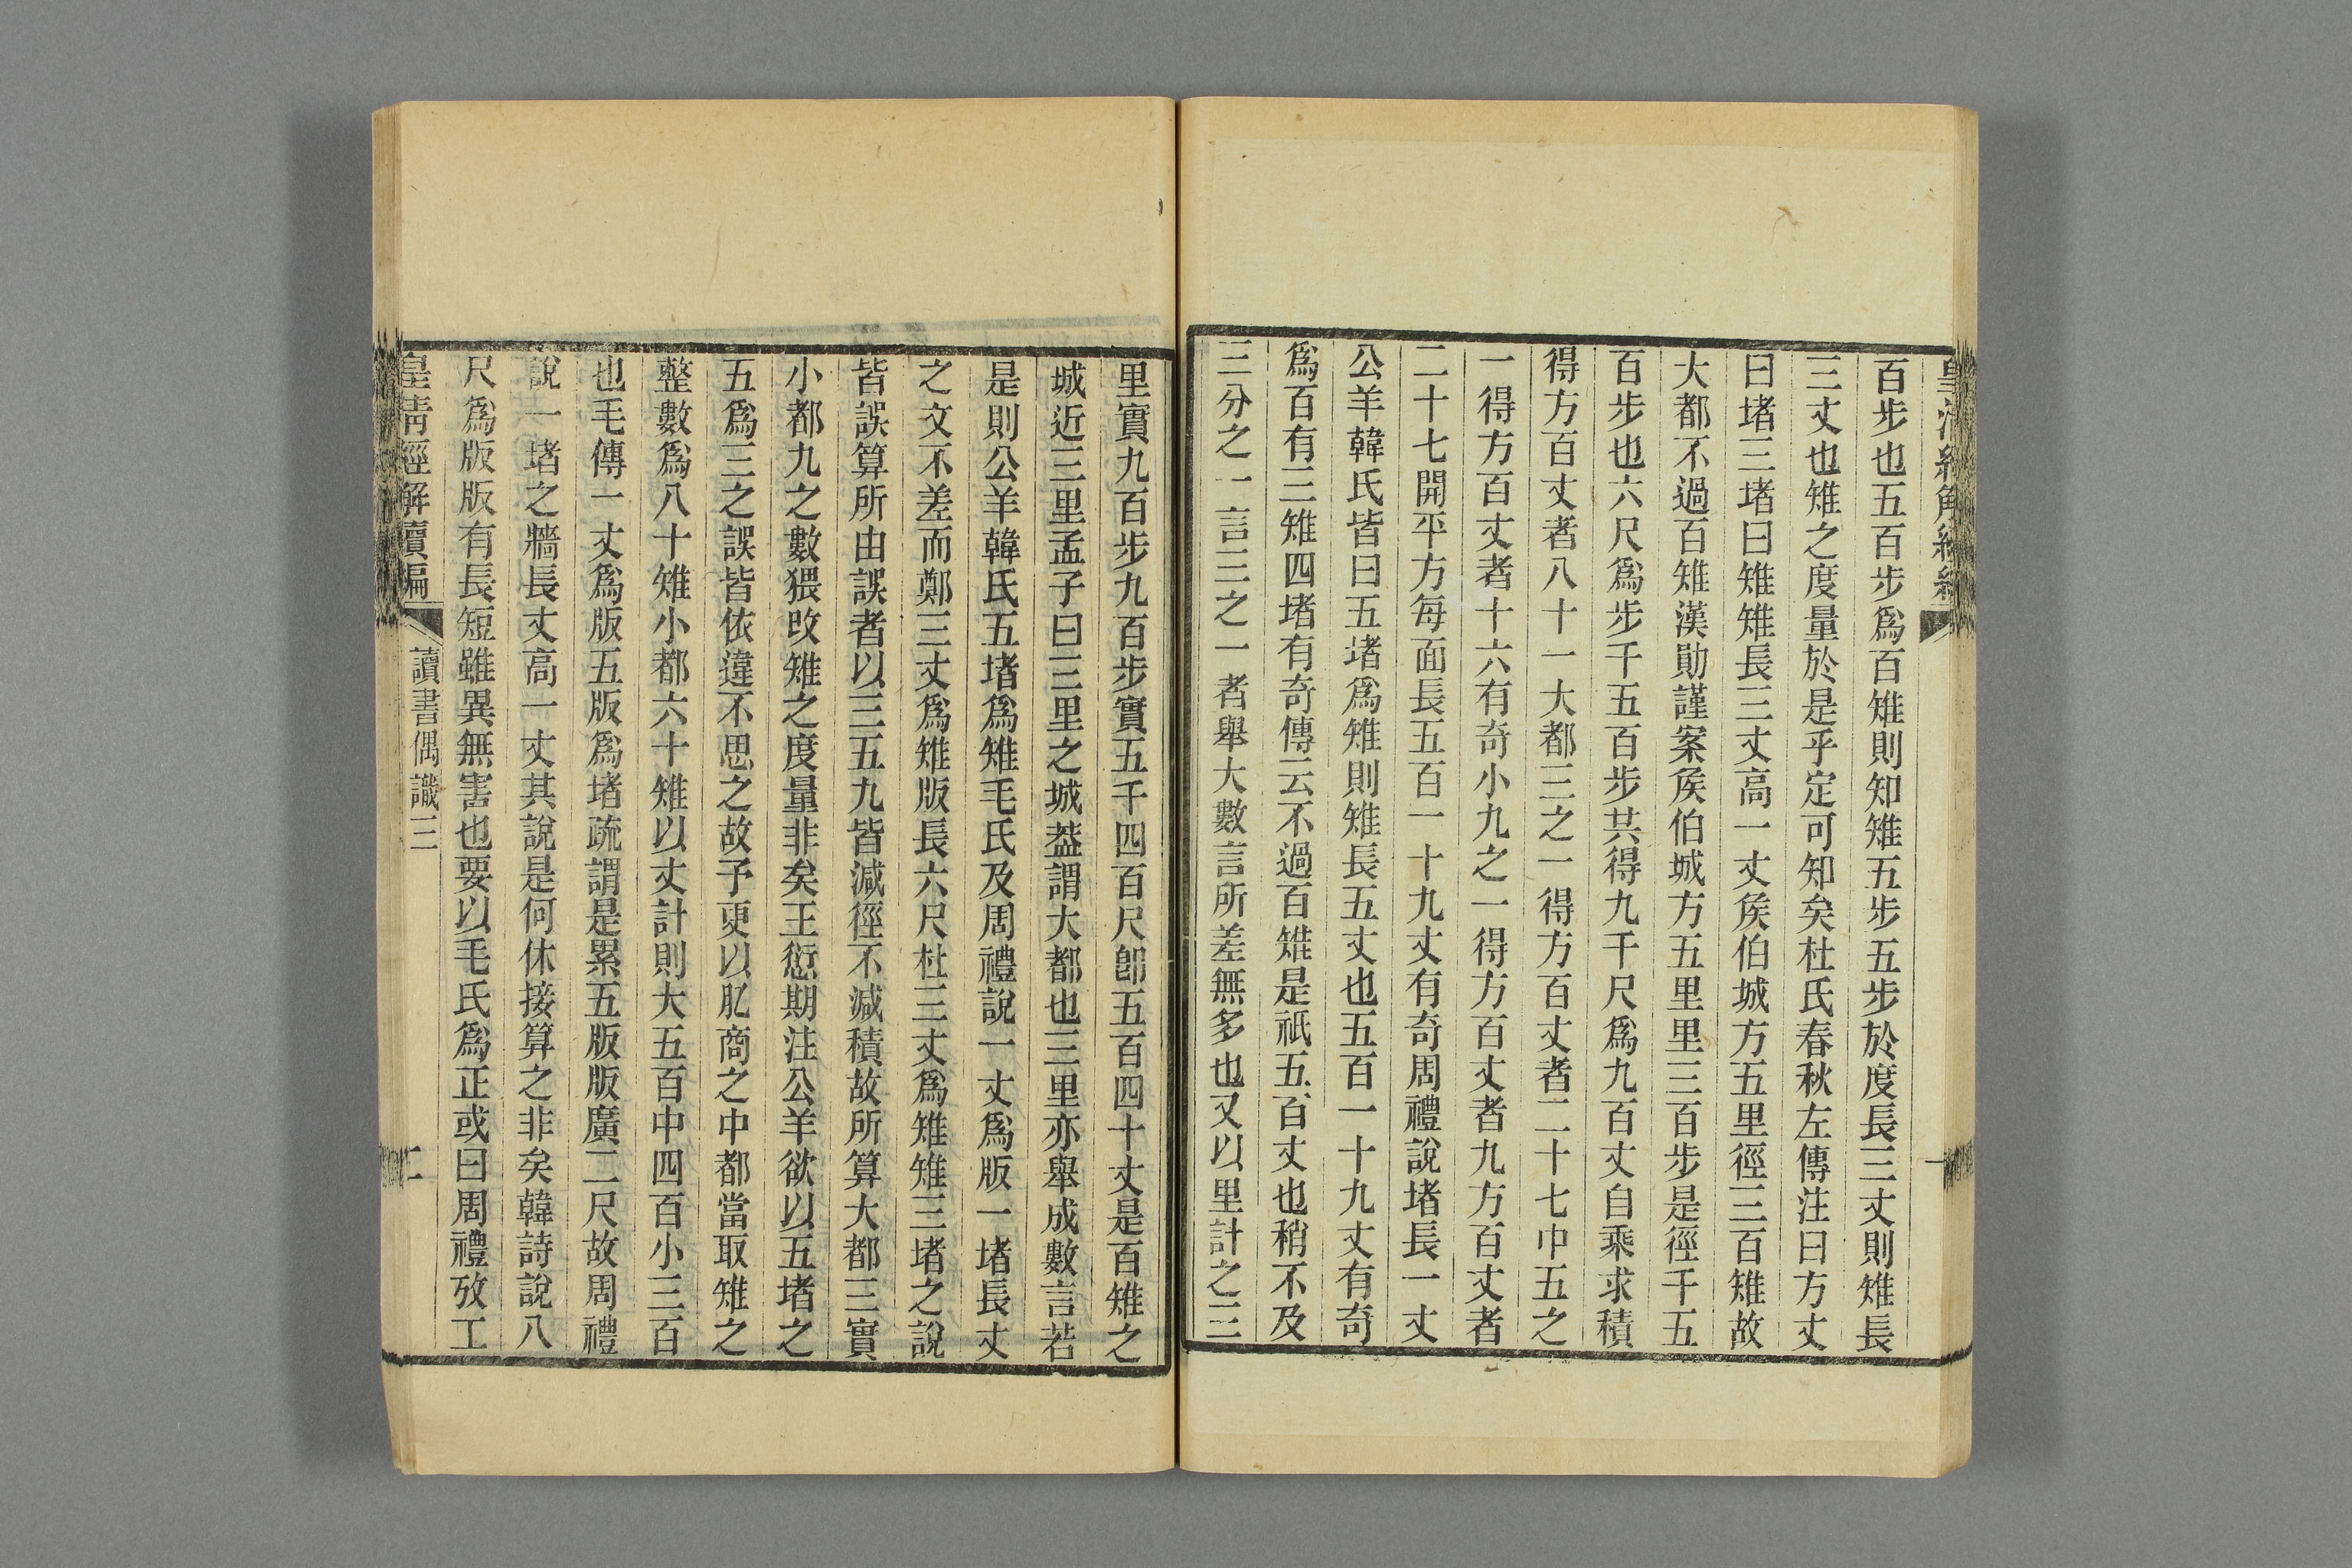 皇清經解續編
一
百步也五百步爲百雉則知雉五步五步於度長三丈則雉長
三丈也雉之度量於是乎定可知矣杜氏春秋左傳注曰方丈
曰堵三堵曰雉雉長三丈高一丈矦伯城方五里徑三百雉故
大都不過百雉漢勛謹案矦伯城方五里里三百步是徑千五
百步也六尺爲步千五百步共得九千尺爲九百丈自乘求積
得方百丈者八十一大都三之一得方百丈者二十七中五之
一得方百丈者十六有奇小九之一得方百丈者九方百丈者
二十七開平方每面長五百一十九丈有奇周禮說堵長一丈
公羊韓氏皆曰五堵爲雉則雉長五丈也五百一十九丈有奇
爲百有三雉四堵有奇傳云不過百雉是祇五百丈也稍不及
三分之一言三之一者舉大數言所差無多也又以里計之三
里實九百步九百步實五千四百尺卽五百四十丈是百雉之
城近三里孟子曰三里之城葢謂大都也三里亦舉成數言若
是則公羊韓氏五堵爲雉毛氏及周禮說一丈爲版一堵長丈
之文不差而鄭三丈爲雉版長六尺杜三丈爲雉雉三堵之說
皆誤算所由誤者以三五九皆減徑不減積故所算大都三實
小都九之數猥攺雉之度量非矣王愆期注公羊欲以五堵之
五爲三之誤皆依違不思之故予更以肊商之中都當取雉之
整數爲八十雉小都六十雉以丈計則大五百中四百小三百
也毛傳一丈爲版五版爲堵疏謂是累五版版廣二尺故周禮
說一堵之牆長丈高一丈其說是何休接算之非矣韓詩說八
尺爲版版有長短雖異無害也要以毛氏爲正或曰周禮攷工
皇清經解續編
讀書偶識三
二